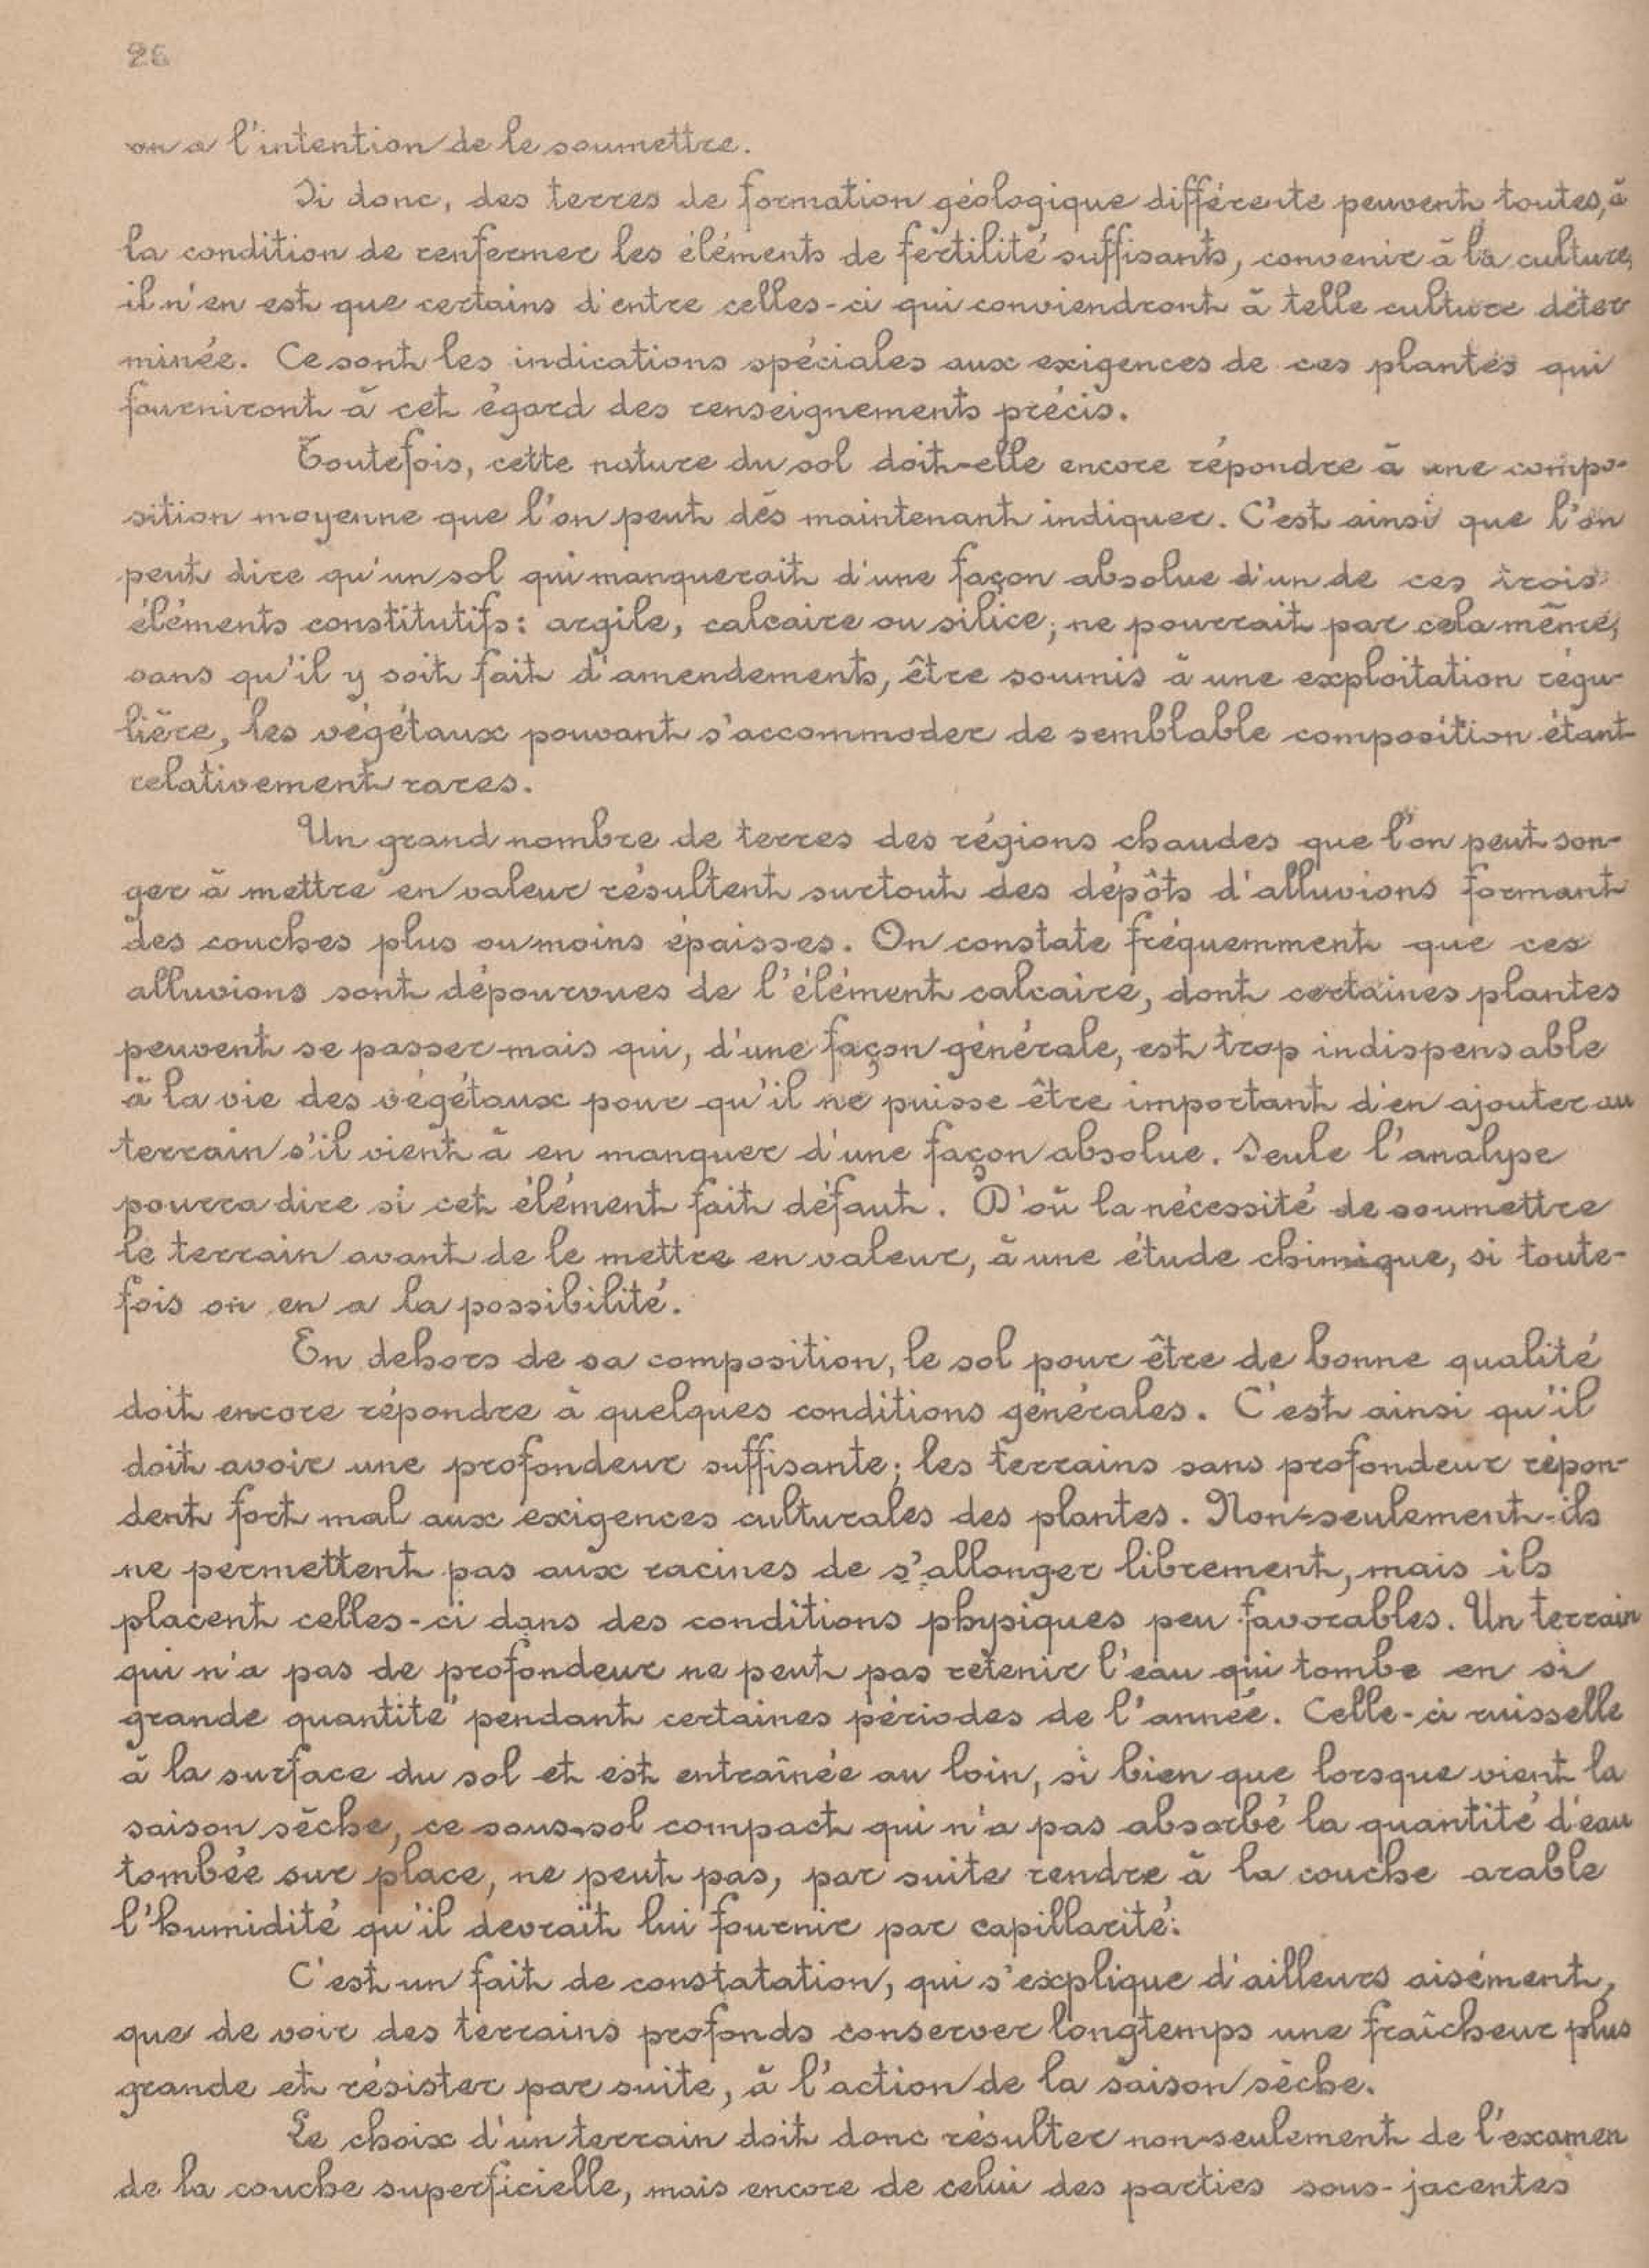 26
on a l'intention de le soumettre.
Si donc, des terres de formation géologique différente peuvent toutes, à
la condition de renfermer les éléments de fertilité suffisants, convenir à la culture,
il n'en est que certains d'entre celles-ci qui conviendront à telle culture déter
minée. Ce sont les indications spéciales aux exigences de ces plantes qui
fourniront à cet égard des renseignements précis.
Toutefois, cette nature du sol doit-elle encore répondre à une compo-
sition moyenne que l'on peut dès maintenant indiquer. C'est ainsi que l'on
peut dire qu'un sol qui manquerait d'une façon absolue d'un de ces trois
éléments constitutifs: argile, calcaire ou silice, ne pourrait par cela même,
sans qu'il y soit fait d'amendements, être soumis à une exploitation régu-
lière, les végétaux pouvant s'accommoder de semblable composition étant
relativement rares.
Un grand nombre de terres des régions chaudes que l'on peut son-
ger à mettre en valeur résultent surtout des dépôts d'alluvions formant
des couches plus ou moins épaisses. On constate fréquemment que ces
alluvions sont dépourvues de l'élément calcaire, dont certaines plantes
peuvent se passer mais qui, d'une façon générale, est trop indispensable
à la vie des végétaux pour qu'il ne puisse être important d'en ajouter au
terrain s'il vient à en manquer d'une façon absolue. Seule l'analyse
pourra dire si cet élément fait défaut. D'où la nécessité de soumettre
le terrain avant de le mettre en valeur, à une étude chimique, si toute-
fois on en a la possibilité.
En dehors de sa composition, le sol pour être de bonne qualité
doit encore répondre à quelques conditions générales. C'est ainsi qu'il
doit avoir une profondeur suffisante; les terrains sans profondeur répon-
dent fort mal aux exigences culturales des plantes. Non-seulement-ils
ne permettent pas aux racines de s'allonger librement, mais ils
placent celles-ci dans des conditions physiques peu favorables. Un terrain
qui n'a pas de profondeur ne peut pas retenir l'eau qui tombe en si
grande quantité pendant certaines périodes de l'année. Celle-ci ruisselle
à la surface du sol et est entraînée au loin, si bien que lorsque vient la
saison sèche, ce sous-sol compact qui n'a pas absorbé la quantité d'eau
tombée sur place, ne peut pas, par suite rendre à la couche arable
l'humidité qu'il devrait lui fournir par capillarité.
C'est un fait de constatation, qui s'explique d'ailleurs aisément,
que de voir des terrains profonds conserver longtemps une fraîcheur plus
grande et résister par suite, à l'action de la saison sèche.
Le choix d'un terrain doit donc résulter non-seulement de l'examen
de la couche superficielle, mais encore de celui des parties sous-jacentes